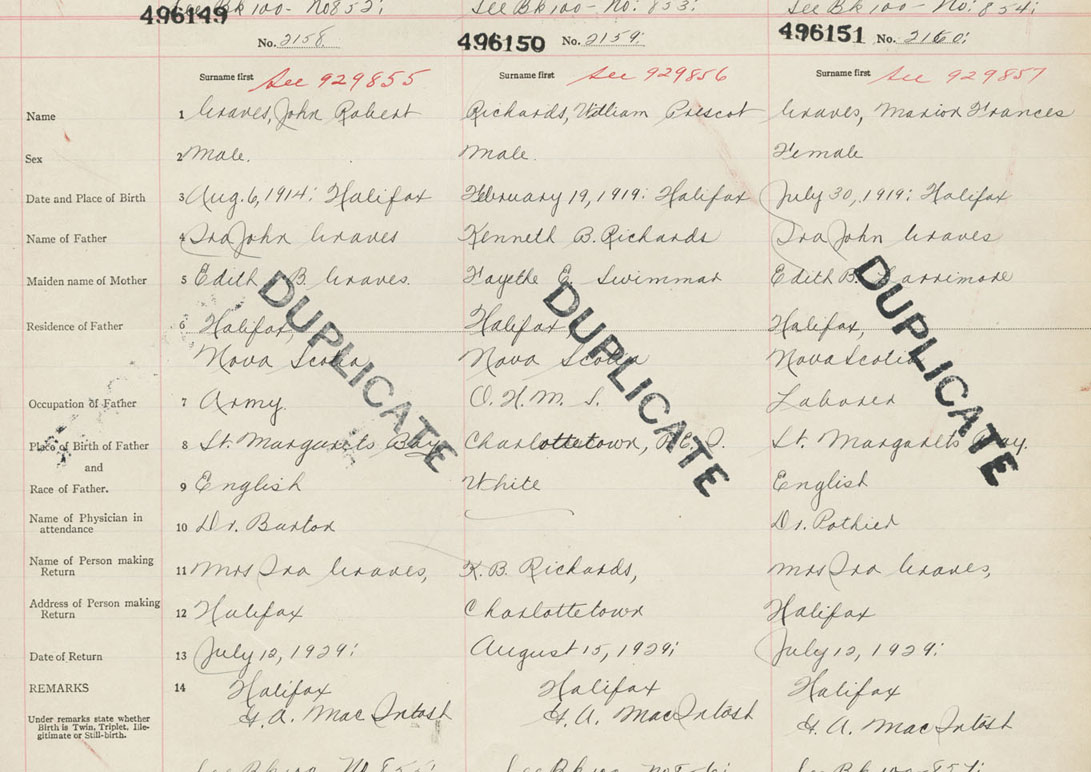 See Bk 100 - No 852; See Bk 100 - No: 853; See Bk 100 - No: 854;
496149 No. 2158. 496150 No. 2159; 496151 No. 2160;
Surname first See 929855 Surname first See 929856 Surname first See 929857
Name 1 Graves, John Robert Richards, William Prescot Graves, Marion Frances
Sex 2 Male. Male. Female
Date and Place of Birth 3 Aug. 6, 1914: Halifax February 19, 1919: Halifax July 30, 1919: Halifax
Name of Father 4 Ira John Graves Kenneth B. Richards Ira John Graves
Maiden name of Mother 5 Edith B. Graves. Fayethe E. Swimmar Edith B. Larrimore
Residence of Father 6 Halifax, Halifax Halifax,
Nova Scotia Nova Scotia Nova Scotia
Occupation of Father 7 Army. O. H. M. S. Laborer
Place of Birth of Father 8 St. Margarets Bay Charlottetown, P.E.I. St. Margarets Bay.
and
Race of Father. 9 English White English
Name of Physician in
attendance 10 Dr. Burton Dr. Pothier
Name of Person making
Return 11 Mrs Ira Graves, K. B. Richards, Mrs Ira Graves,
Address of Person making
Return 12 Halifax Charlottetown Halifax
Date of Return 13 July 12, 1929; August 15, 1929; July 12, 1929;
REMARKS 14 Halifax Halifax Halifax
Under remarks state whether
Birth is Twin, Triplet, Ille-
gitimate or Still-birth. G. A. MacIntosh G. A. MacIntosh G. A. MacIntosh
DUPLICATE DUPLICATE DUPLICATE
See Bk 100 See Bk 100 See Bk 100 - 857;